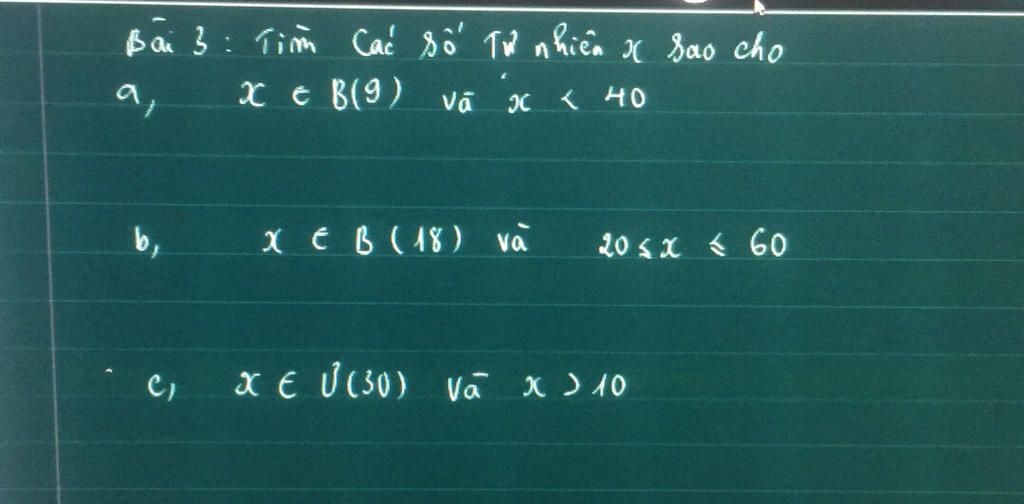 Bài 3 : Tìm các số tự nhiên x sao cho
a, x ∈ B(9) và x < 40
b, x ∈ B (18) và 20 ≤ x ≤ 60
c, x ∈ Ư(30) và x > 10